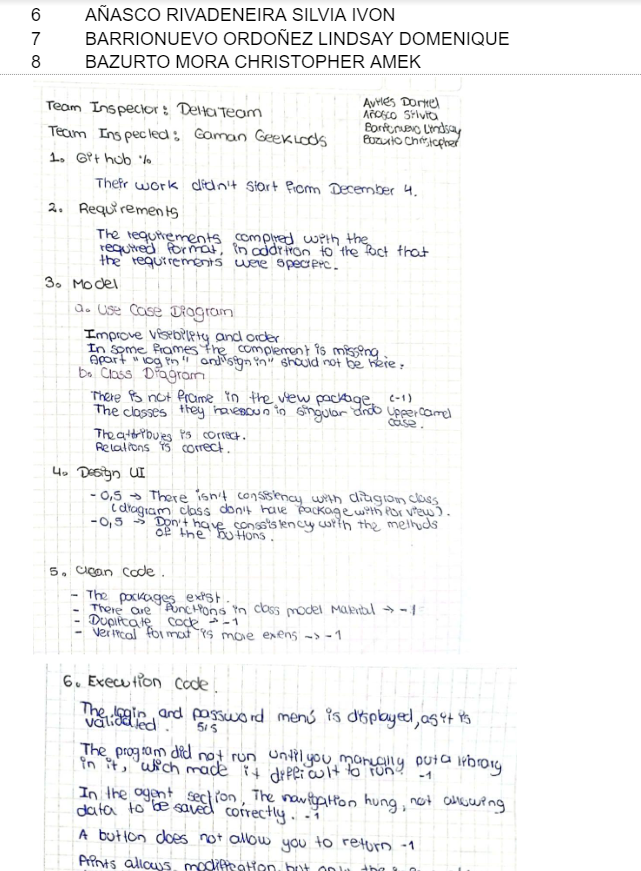 6 AÑASCO RIVADENEIRA SILVIA IVON
7 BARRIONUEVO ORDOÑEZ LINDSAY DOMENIQUE
8 BAZURTO MORA CHRISTOPHER AMEK
Team Inspector: DeltaTeam
Avilés Daniel
Añasco Silvia
Team Inspected: Gaman GeekLods
Barrionuevo Lindsay
Bazurto Christopher
1. Git hub %
Their work didn't start from December 4.
2. Requirements
The requirements complied with the
required format, in addition to the fact that
the requirements were specific.
3. Model
a. Use Case Diagram
Improve visibility and order
In some frames the complement is missing
Apart "log in" and "sign in" should not be here.
b. Class Diagram
There is not frame in the view package (-1)
The classes they have noun in singular and Upper Camel
case.
The attribues is correct.
Relations is correct.
4. Design UI
- 0,5 → There isn't consistency with diagram class
(diagram class don't have package with for view).
- 0,5 → Don't have consistency with the methods
of the buttons.
5. Clean Code.
- The packages exist.
- There are functions in class model Material → -1
- Duplicate code → -1
- Vertical format is more exens → -1
6. Execution Code.
The login and password menú is displayed, as it is
validated. 5/5
The program did not run until you manually put a library
in it, wich made it difficult to run. -1
In the agent section, The navigation hung, not allowing
data to be saved correctly. -1
A button does not allow you to return -1
Prints allows modification, but only the